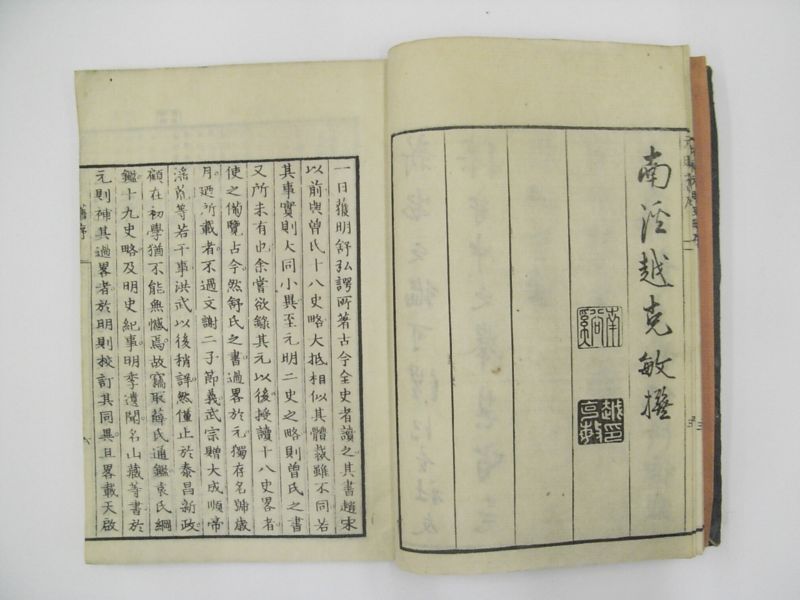 南淫越克敏撰
南谿
越克敏印
一日獲明舒弘諤所著古今全史者讀之其書趙宋
以前與曾氏十八史略大抵相似其體裁雖不同若
其事實則大同小異至元明二史之略則曾氏之書
又所未有也余嘗欲錄其元以後授讀十八史畧者
使之備覽古今然舒氏之書過畧於元獨有名歸歲
月迺所載者不過文謝二子節義武宗贈大成順帝
等若干事洪武以後稍詳然僅止於泰昌新政
顧在初學猶不能無憾焉故竊取薛氏通鑑袁氏綱
鑑十九史略及明史紀事明季遺聞名山藏等書於
元則補其過畧者於明則校訂其同異且畧載天啟